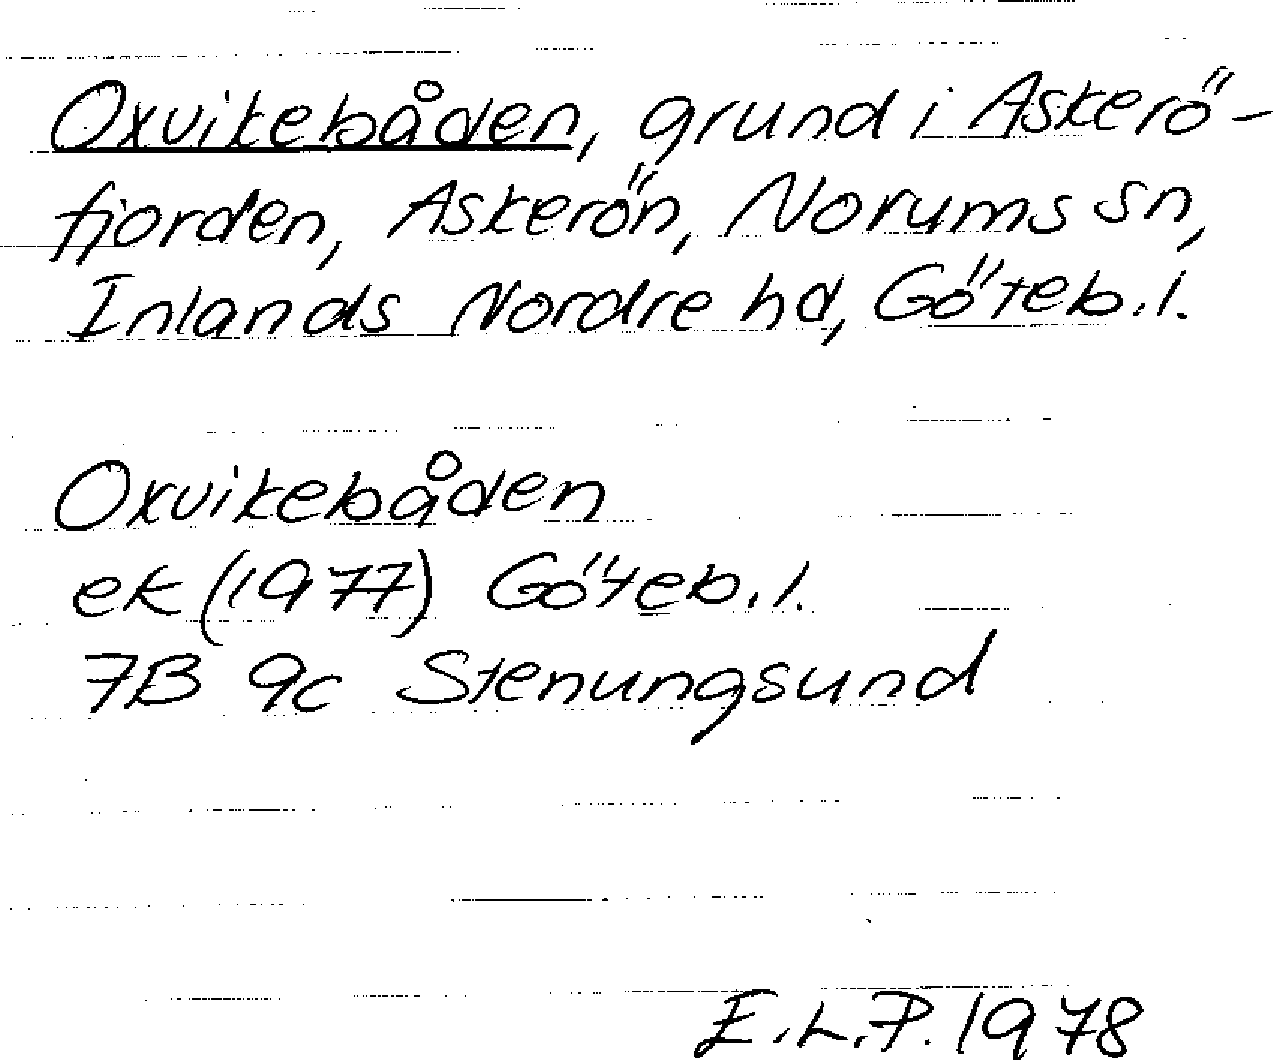 Oxvikebåden, grund i Askerö-
fjorden, Askerön, Norums sn,
Inlands Nordre hd, Göteb.l.
Oxvikebåden
ek (1977) Göteb.l.
7B 9c Stenungsund
E.L.P. 1978